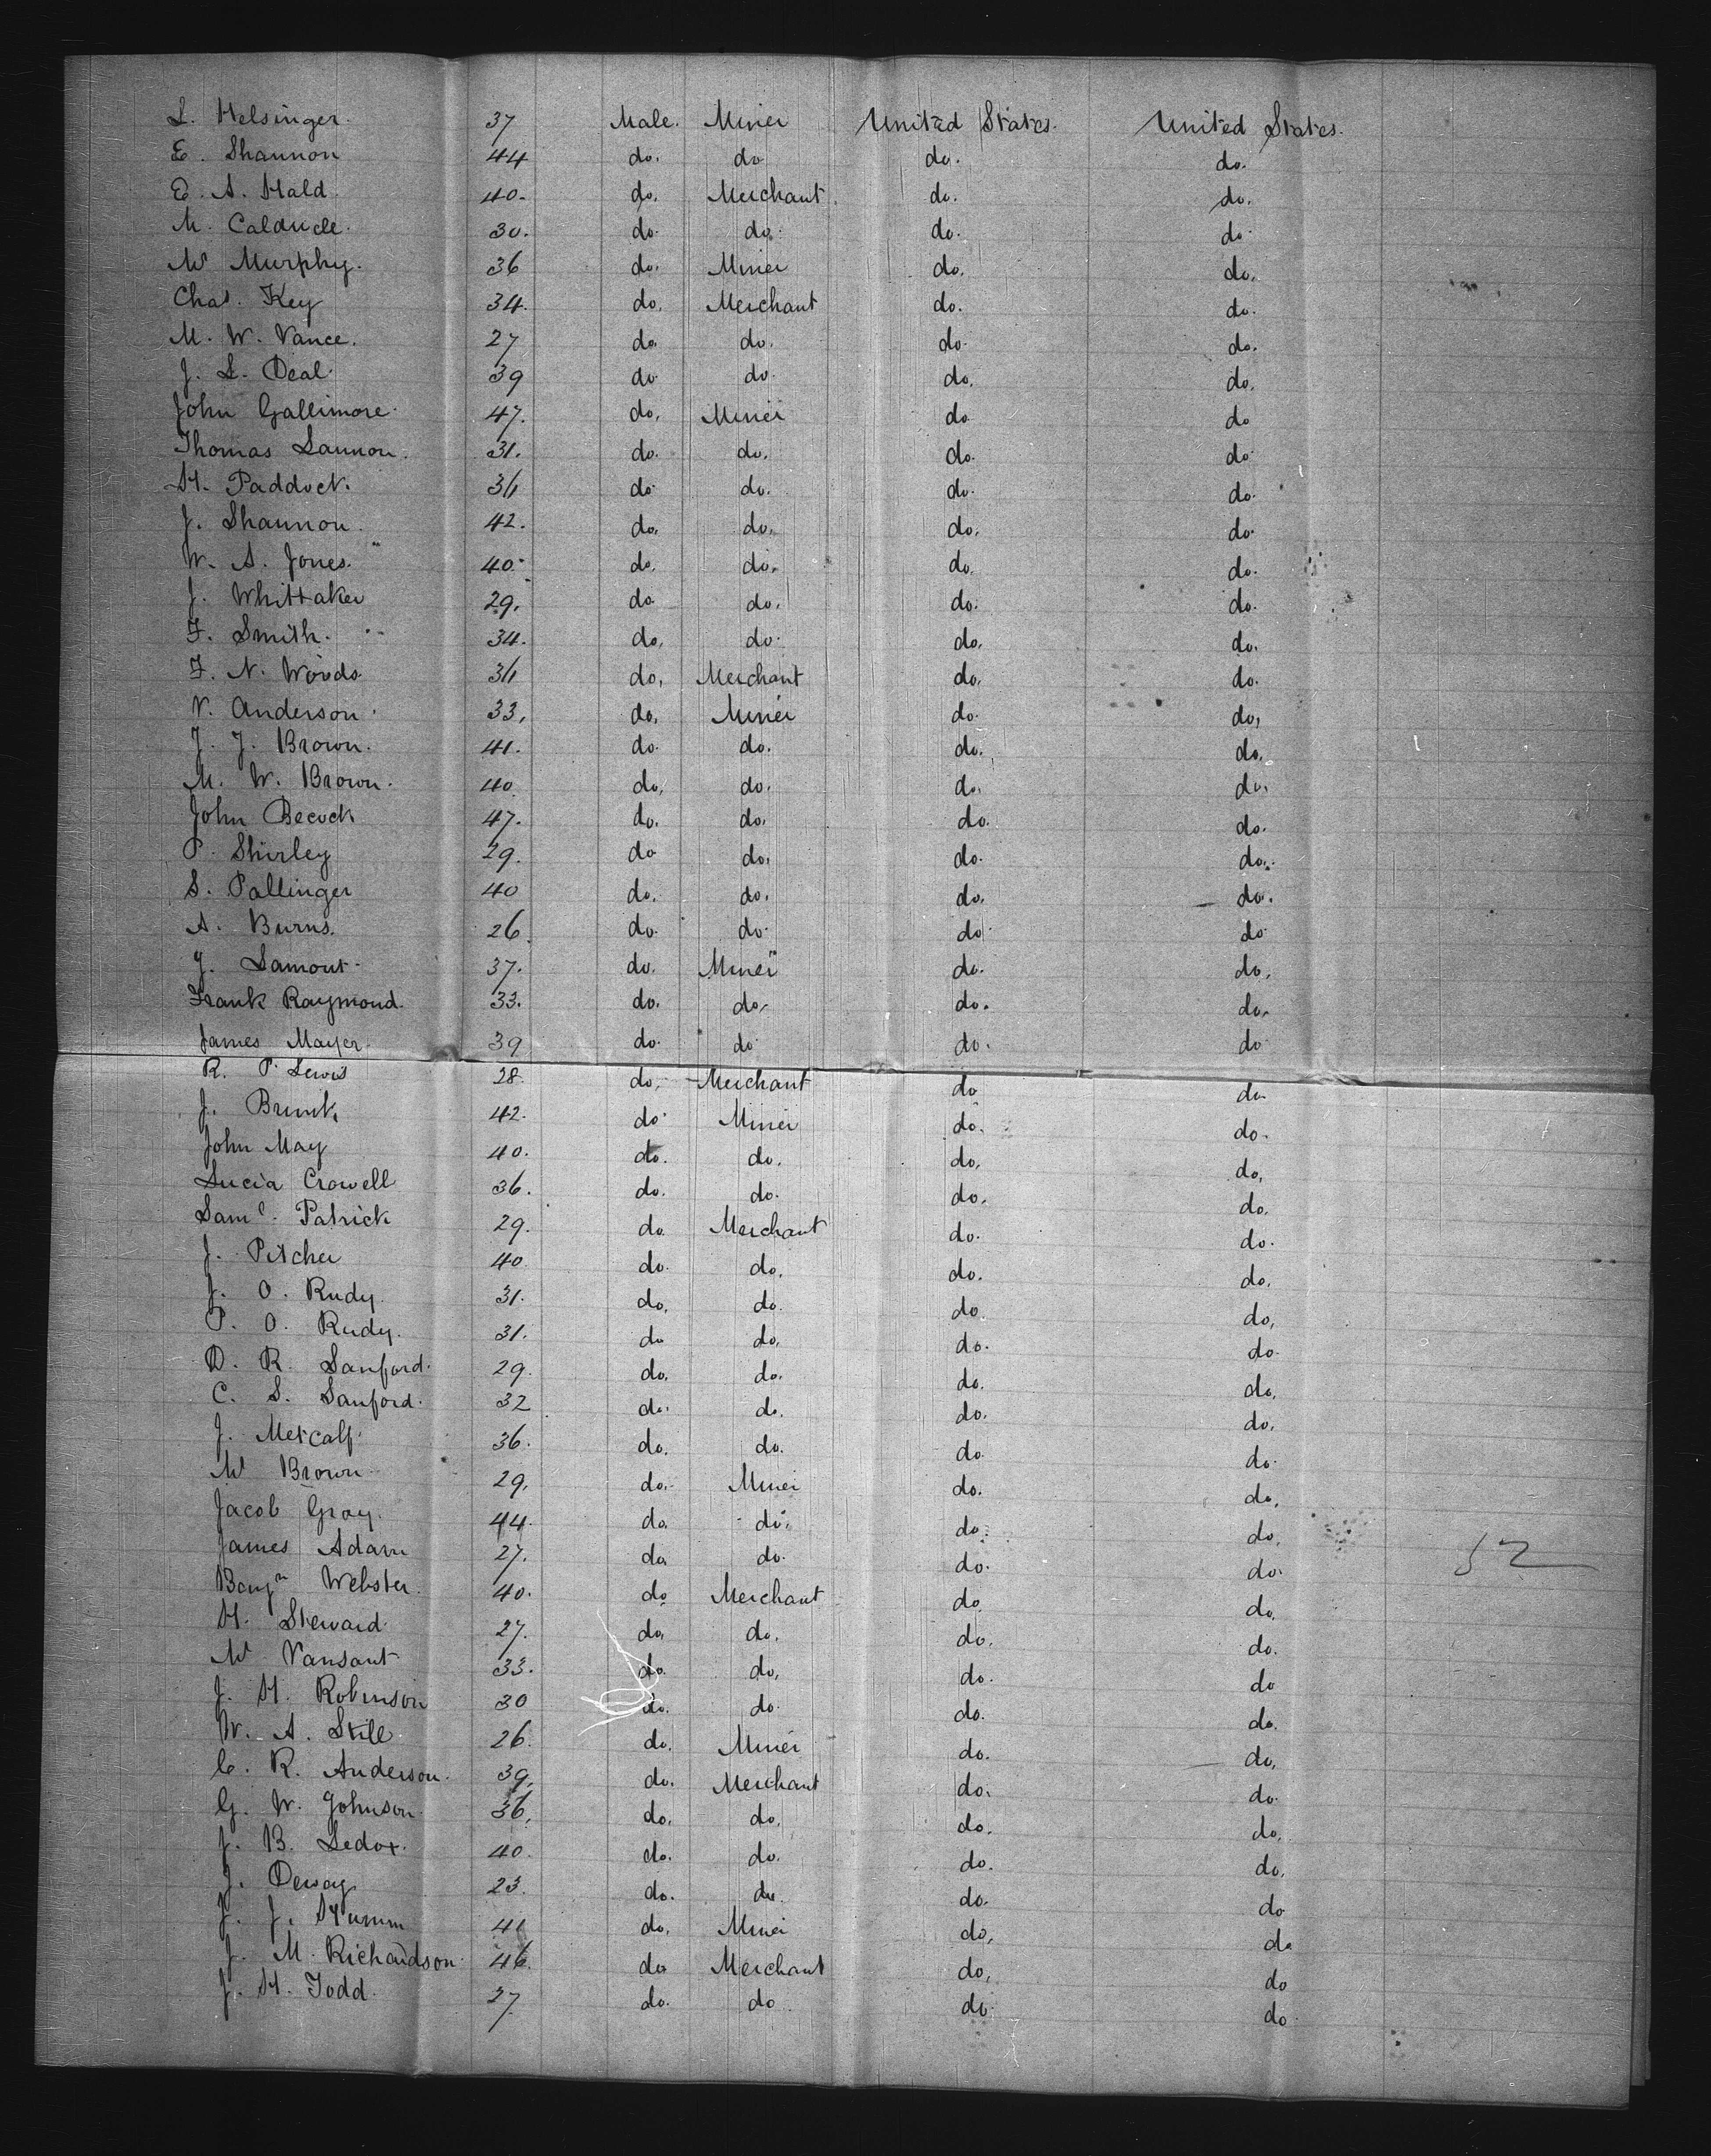 L. Helsinger. 37 Male. Miner United States. United States.
E. Shannon 44 do. do do. do.
E. A. Hald. 40. do. Merchant do. do.
M. Calduele. 30. do. do. do. do.
Wm Murphy. 36 do. Miner do. do.
Chas. Key 34. do. Merchant do. do.
M. W. Vance. 27 do. do. do. do.
J. L. Deal. 39 do. do. do. do.
John Gallimore. 47. do. Miner do. do
Thomas Lannon. 31. do. do. do. do.
H. Paddock. 36 do. do. do. do.
J. Shannon. 42. do. do. do. do.
W. A. Jones. 40. do. do. do. do.
J. Whittaker 29. do. do. do. do.
F. Smith. 34. do. do. do. do.
F. N. Woods. 36 do. Merchant do. do.
V. Anderson. 33. do. Miner do. do.
J. J. Brown. 41. do. do. do. do.
M. W. Brown. 40. do. do. do. do.
John Becock 47. do. do. do. do.
P. Shirley 29. do do. do. do.
S. Pallinger 40 do. do. do. do.
A. Burns. 26. do. do. do do
J. Lamont. 37. do. Miner do. do.
Frank Raymond. 33. do. do. do. do.
James Mayer. 39 do. do. do. do
R. P. Lewis 28. do. Merchant do do.
J. Brunk 42. do. Miner do. do.
John May 40. do. do. do. do.
Lucia Crowell 36. do. do. do. do.
Saml. Patrick 29. do. Merchant do. do.
J. Pitcher 40. do. do. do. do.
J. O. Rudy. 31. do. do. do. do.
P. O. Rudy. 31. do do. do. do.
D. R. Sanford. 29. do. do. do. do.
C. S. Sanford. 32 do. do. do. do.
J. Metcalf. 36. do. do. do. do.
Wm Brown 29. do. Miner do. do.
Jacob Gray. 44. do. do. do. do.
James Adam 27. do do. do. do.
Benjn Webster. 40. do Merchant do. do. 52
H. Steward. 27. do. do. do. do.
Wm Vansant 33. do. do. do. do
J. H. Robinson 30 do. do. do. do.
W. A. Still 26. do. Miner do. do.
C. R. Anderson. 39. do. Merchant do. do.
G. W. Johnson. 36. do. do. do. do.
J. B. Ledox. 40. do. do. do. do.
J. Deway 23. do. do. do. do
J. J. 41 do. Miner do. do
J. M. Richardson. 46. do Merchant do. do
J. H. Todd. 27. do. do do do